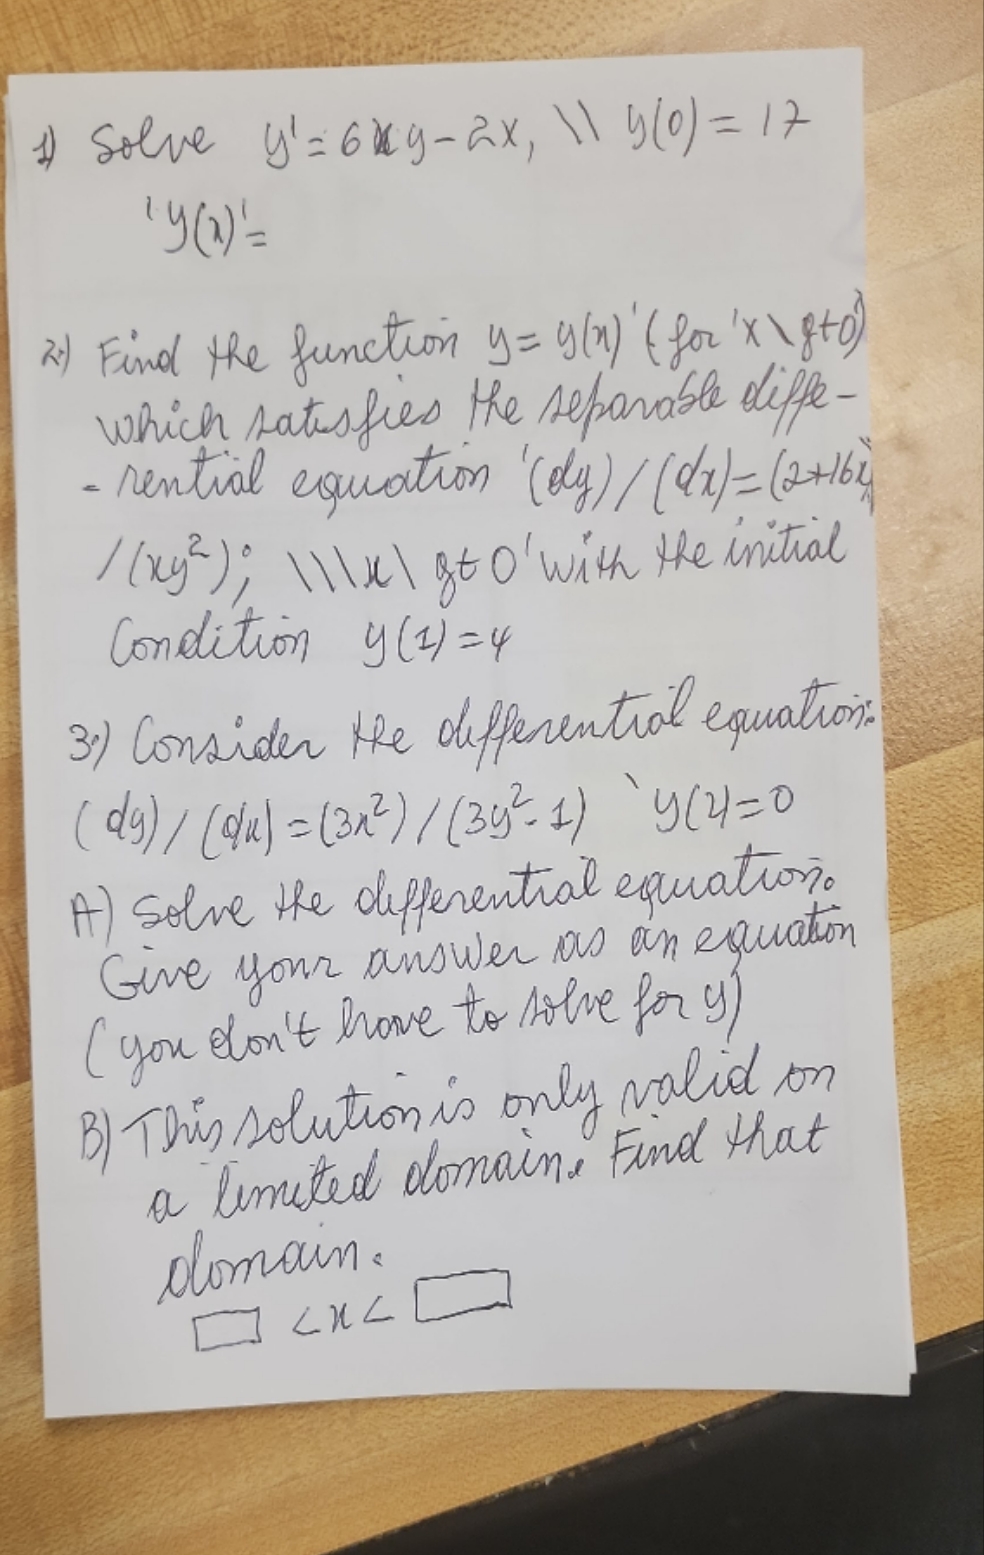 1) Solve y' = 6xy - 2x, \\ y(0) = 17
'y(x)'=
2.) Find the function y = y(x)' (for 'x \gt0')
which satisfies the separable diffe-
- rential equation '(dy)/(dx)=(2+16x)
/(xy²); \\\x\ gt0' with the initial
Condition y(1)=4
3.) Consider the differential equation:
(dy)/(dx) = (3x²)/(3y²-1) ` y(2)=0
A) Solve the differential equation.
Give your answer as an equation
(you don't have to solve for y)
B) This solution is only valid on
a limited domain. Find that
domain.
<x<